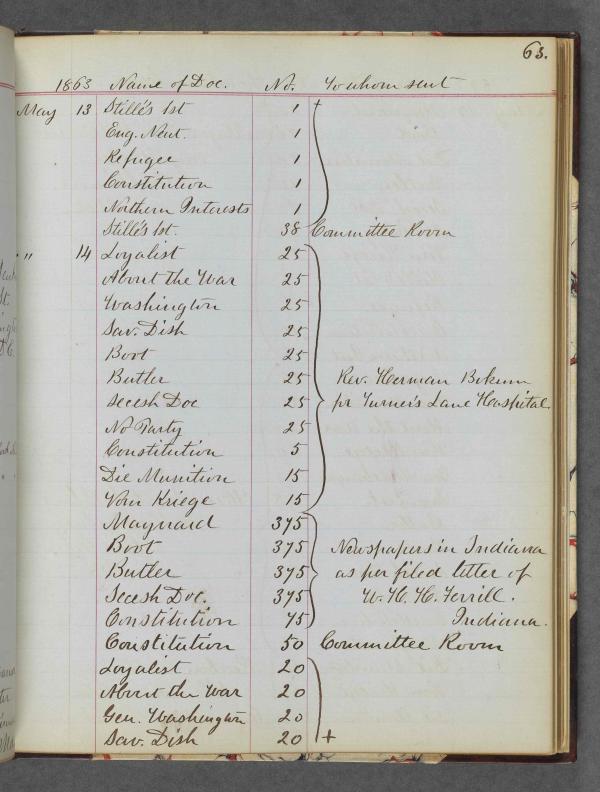 63.
1863 Name of Doc. No. To whom sent
May 13 Stillé's 1st 1 +
Eng. Neut. 1
Refugee 1
Constitution 1
Northern Interests 1
Stillé's 1st. 38 Committee Room
" " 14 Loyalist 25
About the War 25
Washington 25
Sav. Dish 25
Boot 25
Butler 25 Rev. Herman Bokum
Secesh Doc 25 pr Turner's Lane Hospital
No Party 25
Constitution 5
Die Munition 15
Vom Kriege 15
Maynard 375
Boot 375 Newspapers in Indiana
Butler 375 as per filed letter of
Secesh Doc. 375 W. H. H. Terrill.
Constitution 75 Indiana.
Constitution 50 Committee Room
Loyalist 20
About the War 20
Gen. Washington 20
Sav. Dish 20 +